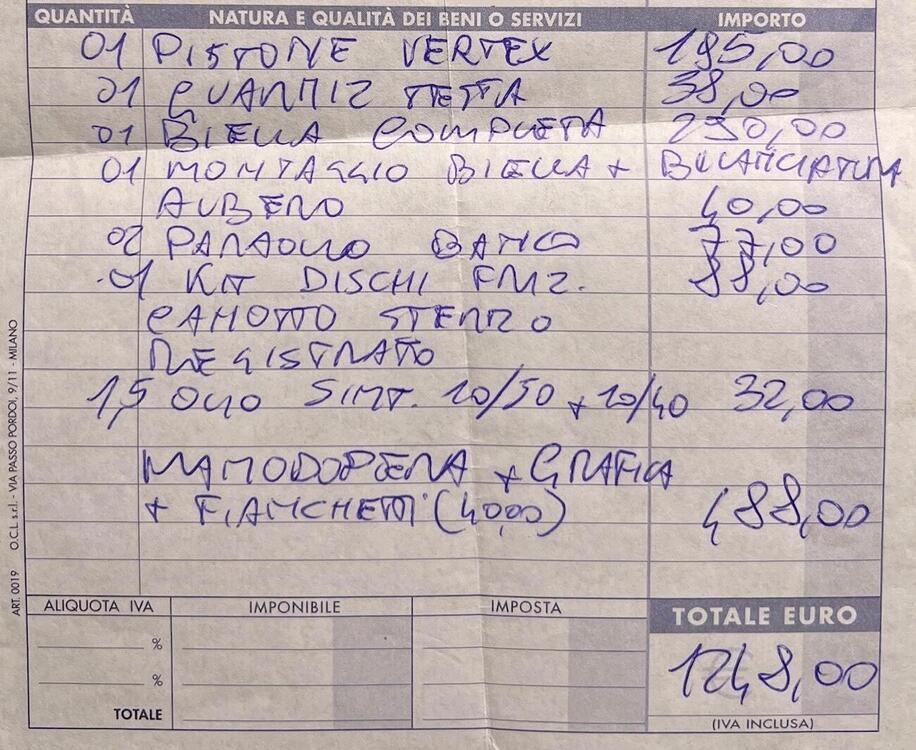 QUANTITÀ NATURA E QUALITÀ DEI BENI O SERVIZI IMPORTO
01 PISTONE VERTEX 195,00
01 GUARNIZ TESTA 38,00
01 BIELLA COMPLETA 290,00
01 MONTAGGIO BIELLA + BILANCIATURA
ALBERO 40,00
02 PARAOLIO BANCO 77,00
01 KIT DISCHI FRIZ. 88,00
CANOTTO STERZO
REGISTRATO
1,5 OLIO SINT. 10/50 + 10/40 32,00
MANODOPERA + GRAFICA
+ FIANCHETTI (40,00) 488,00
ART. 0019 O.C.L. s.r.l. - VIA PASSO PORDOI, 9/11 - MILANO
ALIQUOTA IVA IMPONIBILE IMPOSTA TOTALE EURO
%
%
1248,00
TOTALE
(IVA INCLUSA)